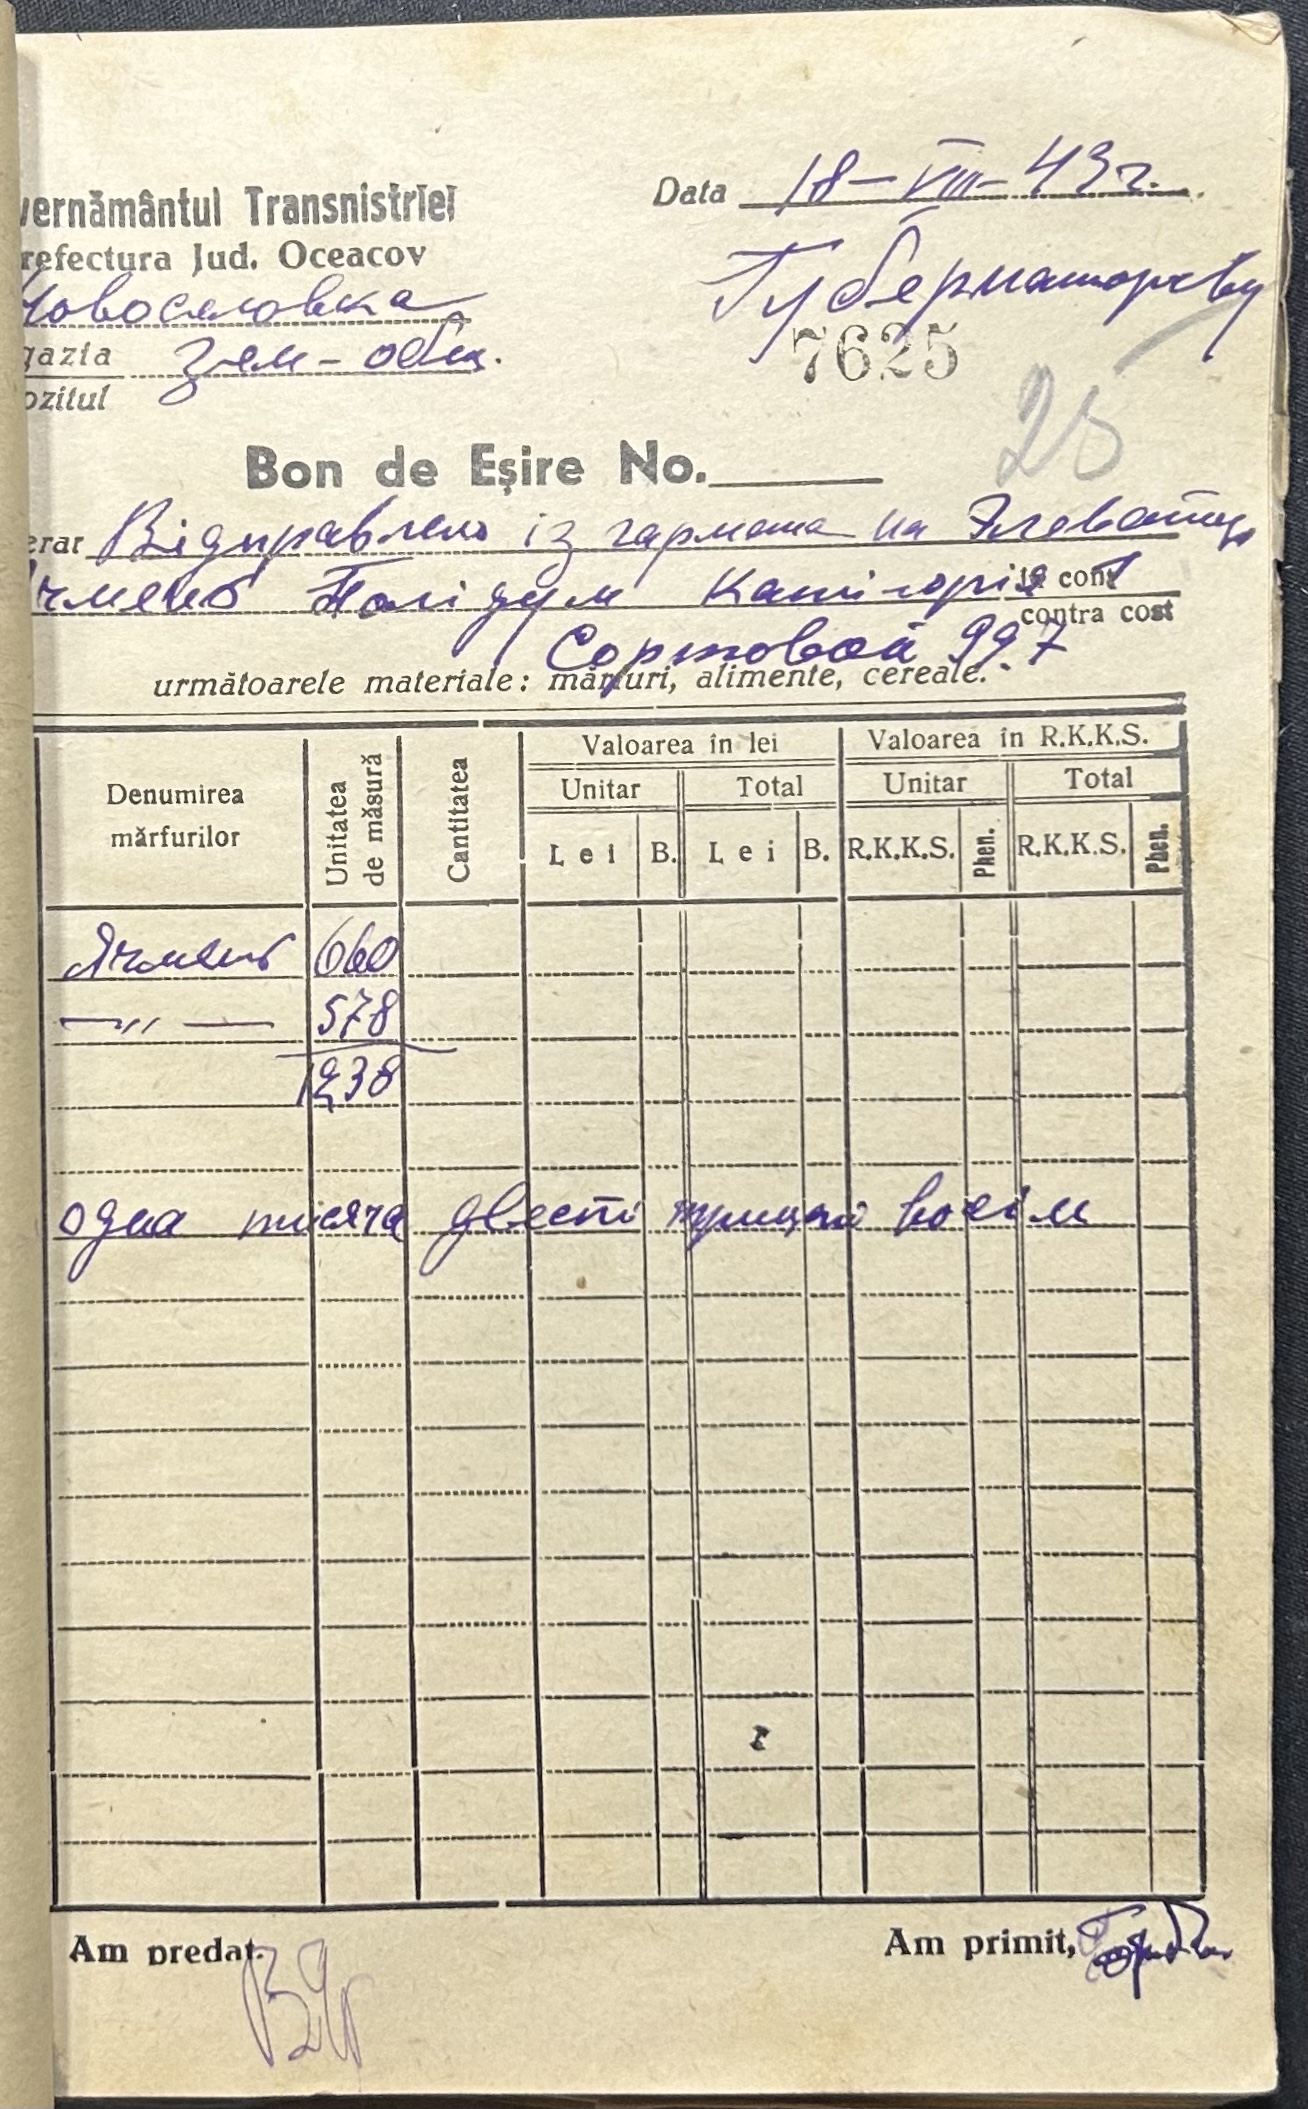 vernământul Transnistriei
Data 18-VIII-43г.
refectura Jud. Oceacov
Новоселовка
Губернаторству
gazia зем-общ.
7625
ozitul
25
Bon de Eşire No.
erar Відправлено із гармана на Элеватор
чмень Палідум Катігорія I
la cont
contra cost
Сортовой 99.7
următoarele materiale: mărfuri, alimente, cereale.
Denumirea mărfurilor Unitatea de măsură Cantitatea Valoarea în lei Valoarea în R.K.K.S.
Unitar Total Unitar Total
Lei B. Lei B. R.K.K.S. Phen. R.K.K.S. Phen.
Ячмень 660
—„— 578
1238
одна тисяча двесті трицять восім
Am predat.
Am primit,